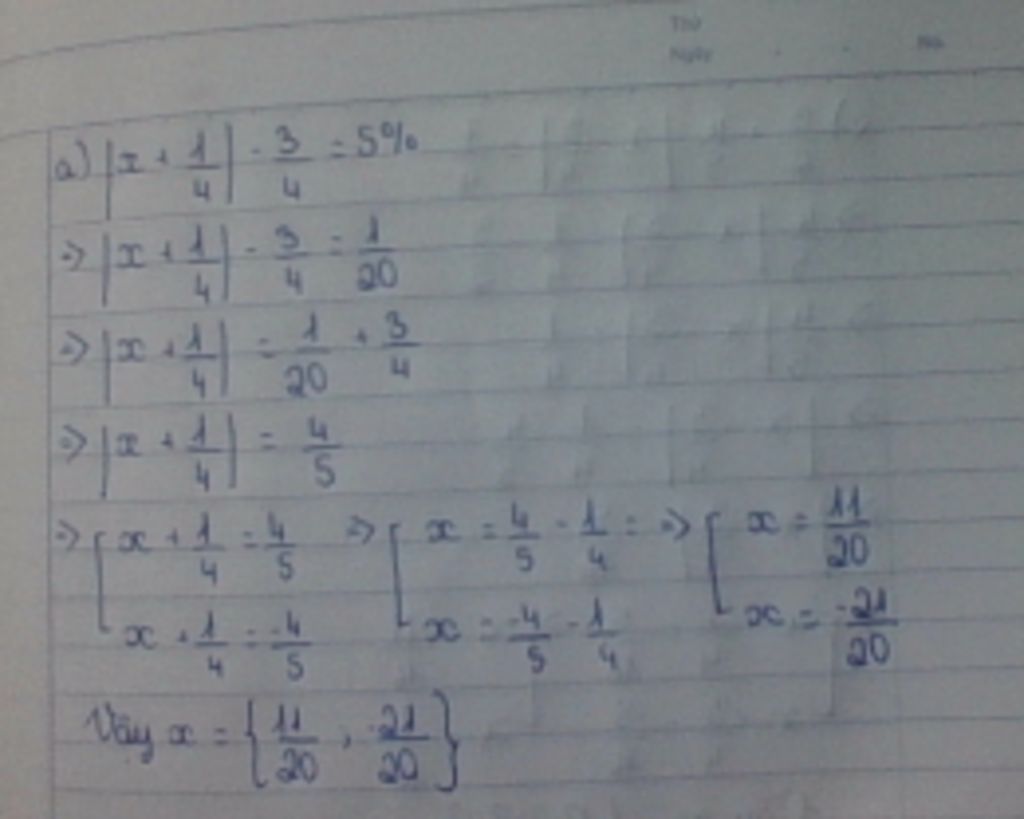 Thứ
Ngày . . No.
a) |x + 1/4| - 3/4 = 5%
=> |x + 1/4| - 3/4 = 1/20
=> |x + 1/4| = 1/20 + 3/4
=> |x + 1/4| = 4/5
=> [ x + 1/4 = 4/5 => [ x = 4/5 - 1/4 = => [ x = 11/20
x + 1/4 = -4/5 x = -4/5 - 1/4 x = -21/20
Vậy x = {11/20 , -21/20}